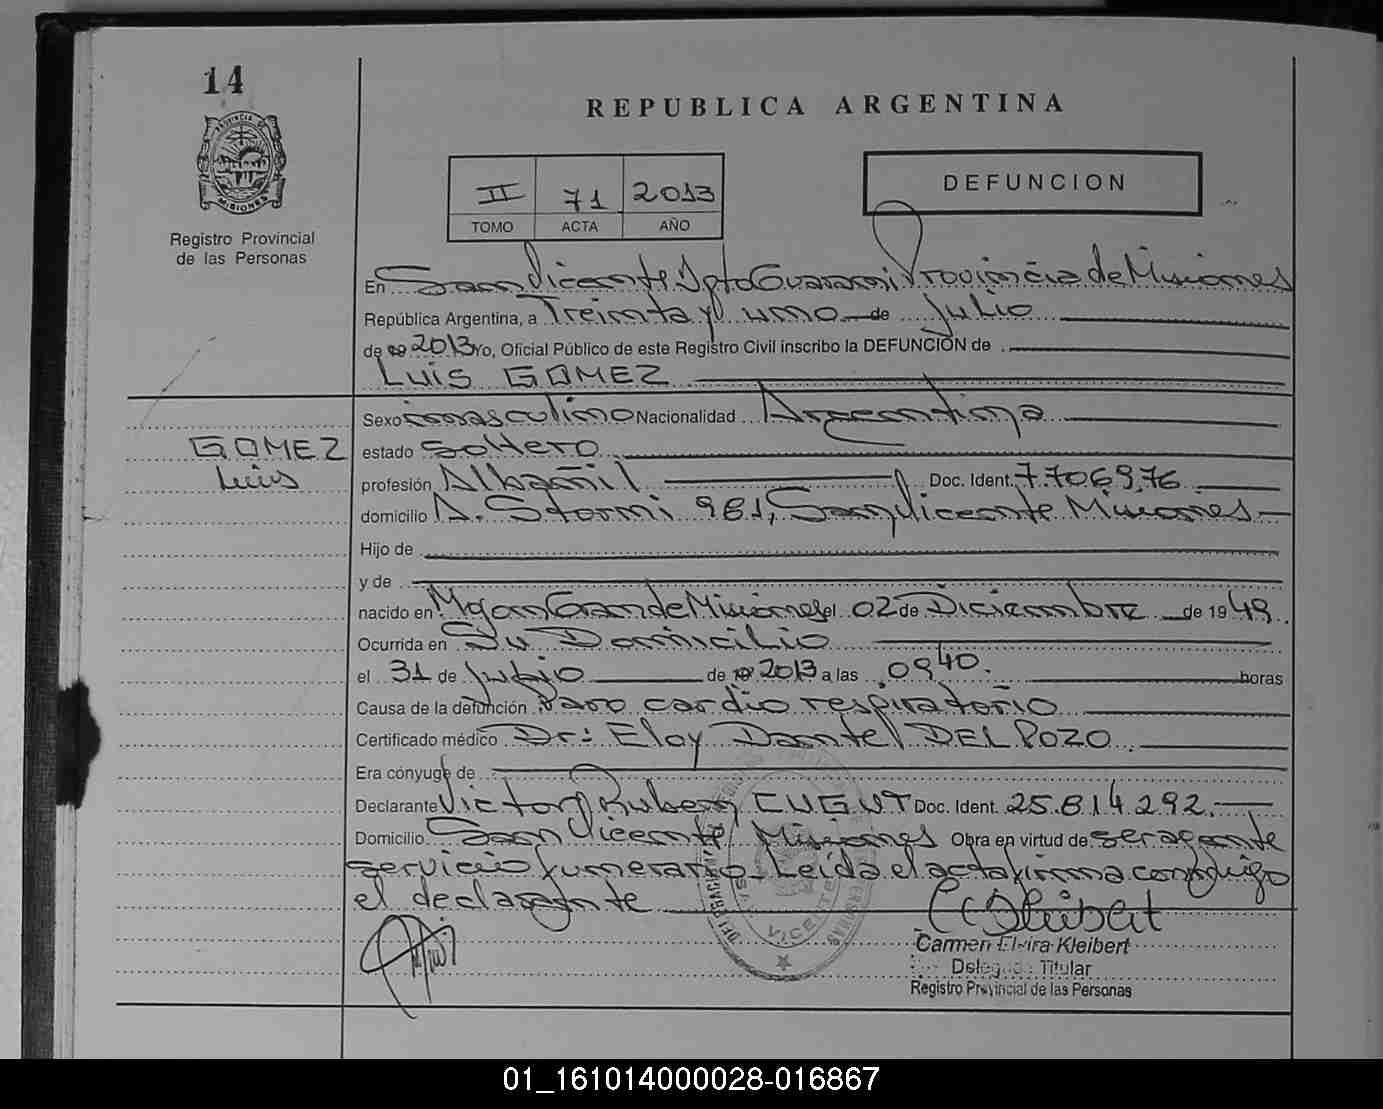 14
REPUBLICA ARGENTINA
PROVINCIA DE
MISIONES
Registro Provincial
de las Personas
II 71 2013
TOMO ACTA AÑO
DEFUNCION
En San Vicente Dpto Guarani Provincia de Misiones
República Argentina, a Treinta y uno de Julio
de 2013 Yo, Oficial Público de este Registro Civil inscribo la DEFUNCIÓN de
LUIS GOMEZ
Sexo masculino Nacionalidad Argentina
GOMEZ
Luis
estado soltero
profesión Albañil Doc. Ident. 7.706.976
domicilio A. Storni 981, San Vicente Misiones
Hijo de
y de
nacido en Mojon Grande Misiones el 02 de Diciembre de 1949
Ocurrida en Su Domicilio
el 31 de Julio de 2013 a las 09 40. horas
Causa de la defunción Paro cardio respiratorio
Certificado médico Dr: Eloy Daniel DEL POZO
Era cónyuge de
Declarante Victor Ruben CUGUT Doc. Ident. 25.814.292.
Domicilio San Vicente Misiones Obra en virtud de ser agente
servicio funerario Leida el acta firma conmigo
el declarante
VICENTE
Carmen Elvira Kleibert
Delegada Titular
Registro Provincial de las Personas
01_161014000028-016867